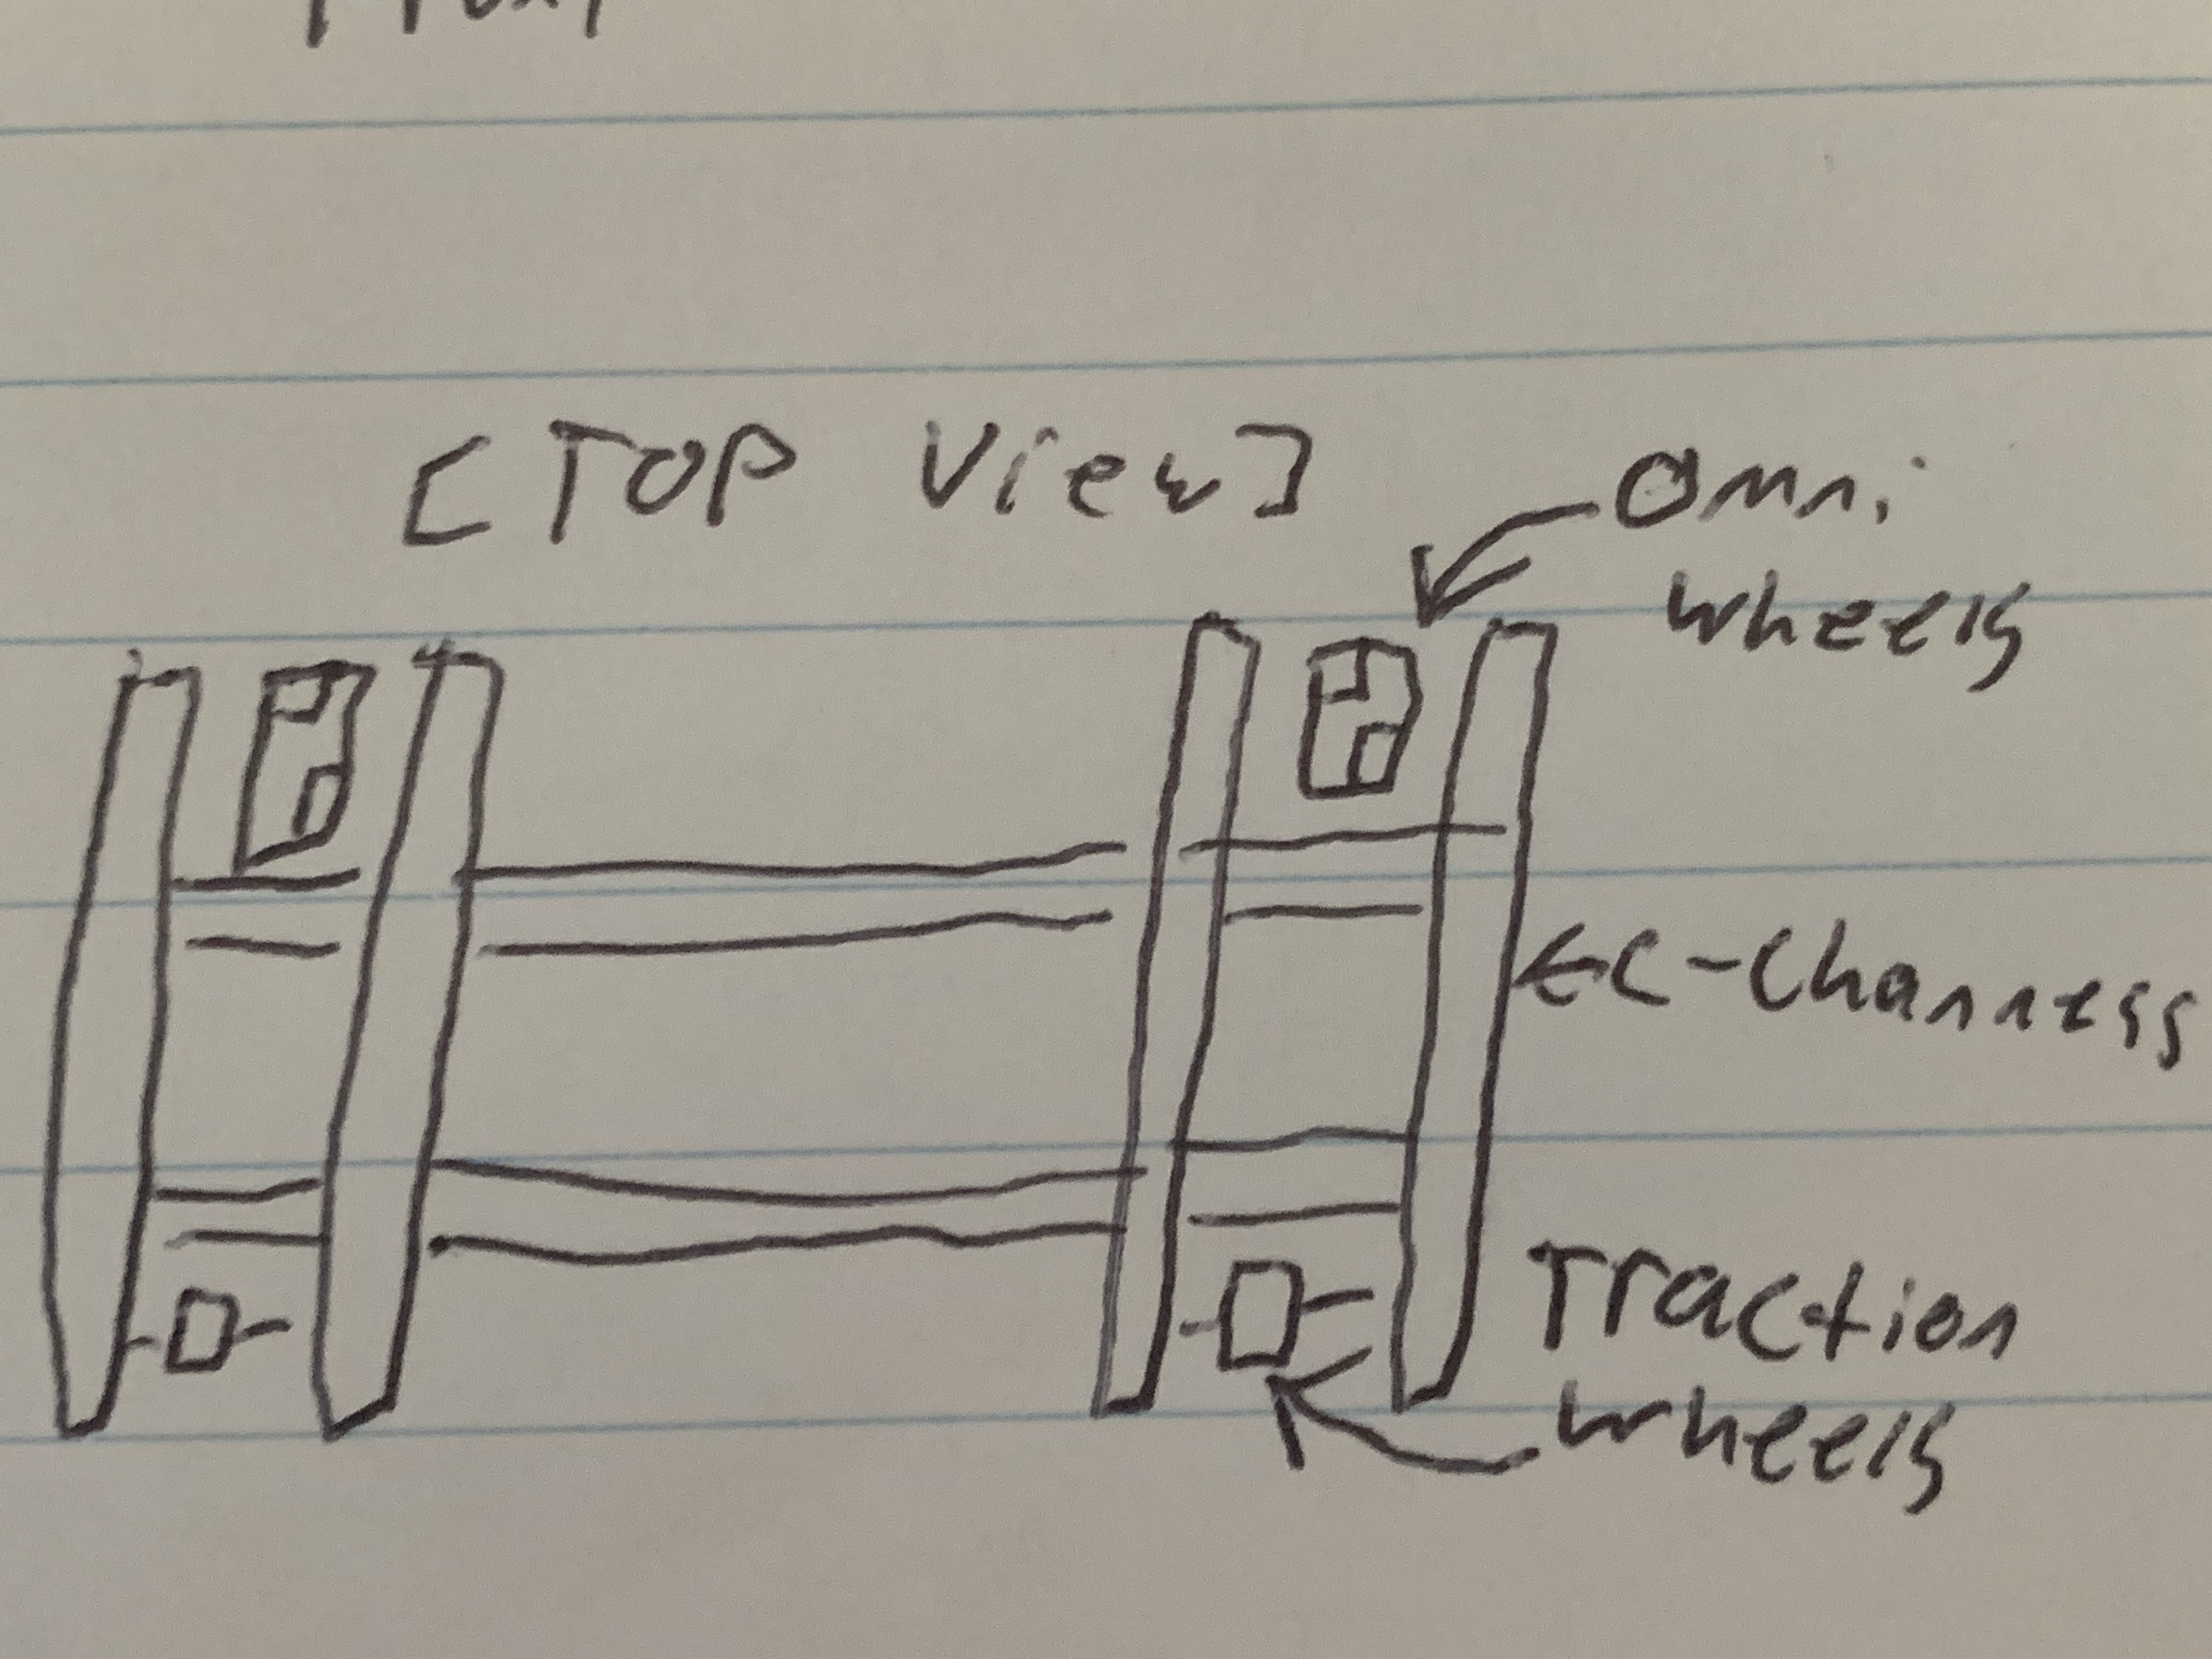 [TOP View]
Omni
wheels
C-Channels
Traction
wheels